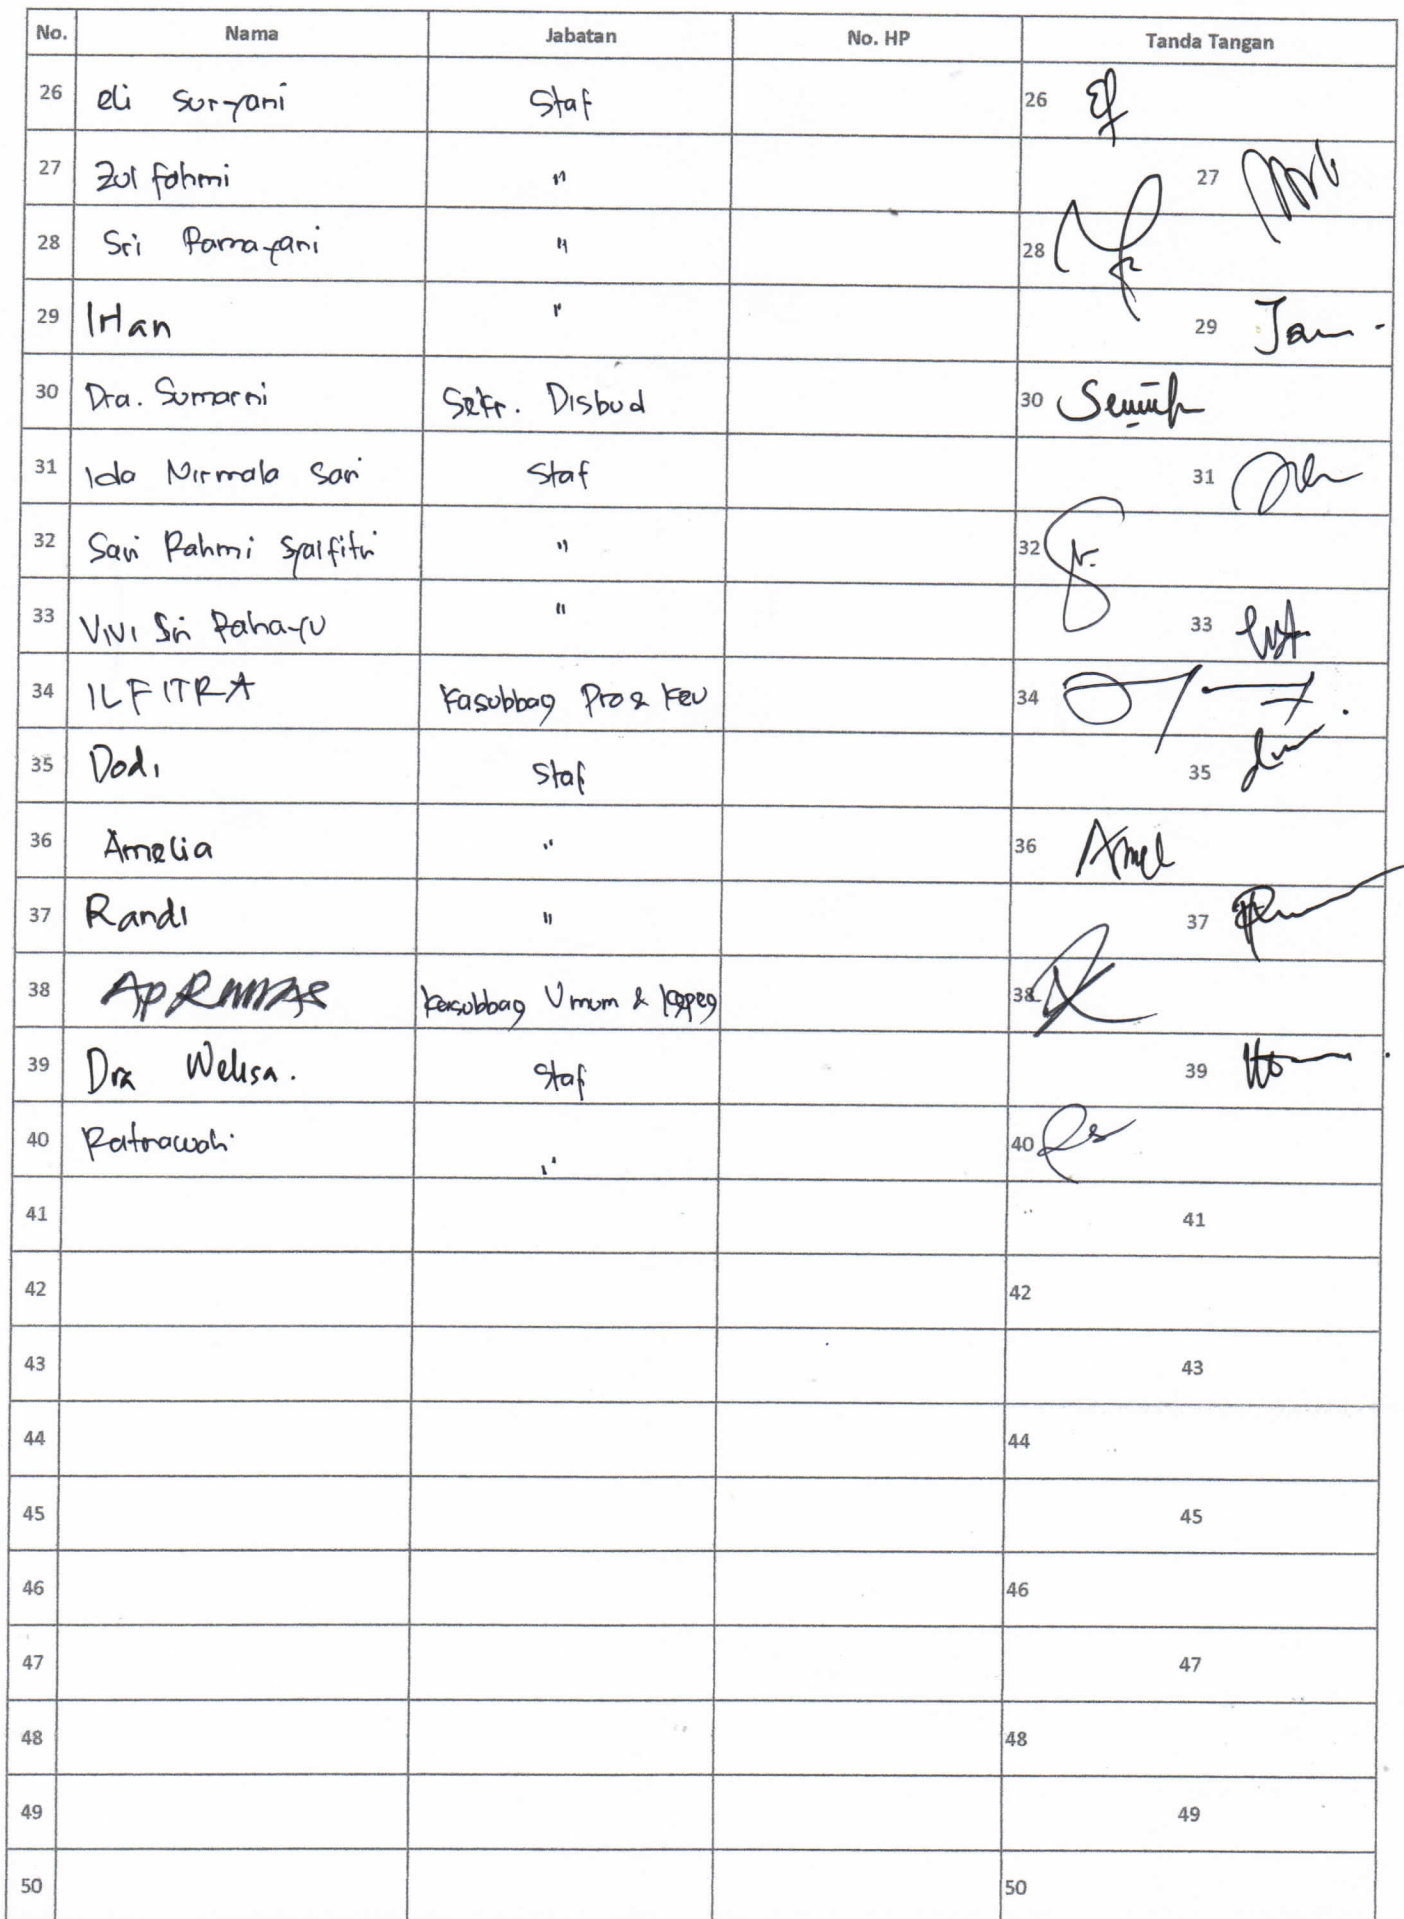 No. Nama Jabatan No. HP Tanda Tangan
26 eli Suryani Staf 26
27 Zul fahmi " 27
28 Sri Ramayani " 28
29 IHan " 29
30 Dra. Sumarni Sekr. Disbud 30
31 Ida Nirmala Sari Staf 31
32 Sari Rahmi Syalfitri " 32
33 Vivi Sri Rahayu " 33
34 ILFITRA Kasubbag Pro & Keu 34
35 Dodi Staf 35
36 Amelia " 36 Amel
37 Randi " 37
38 Kasubbag Umum & Kepeg 38
39 Dra Welisa. Staf 39
40 Ratnawati " 40
41 41
42 42
43 43
44 44
45 45
46 46
47 47
48 48
49 49
50 50